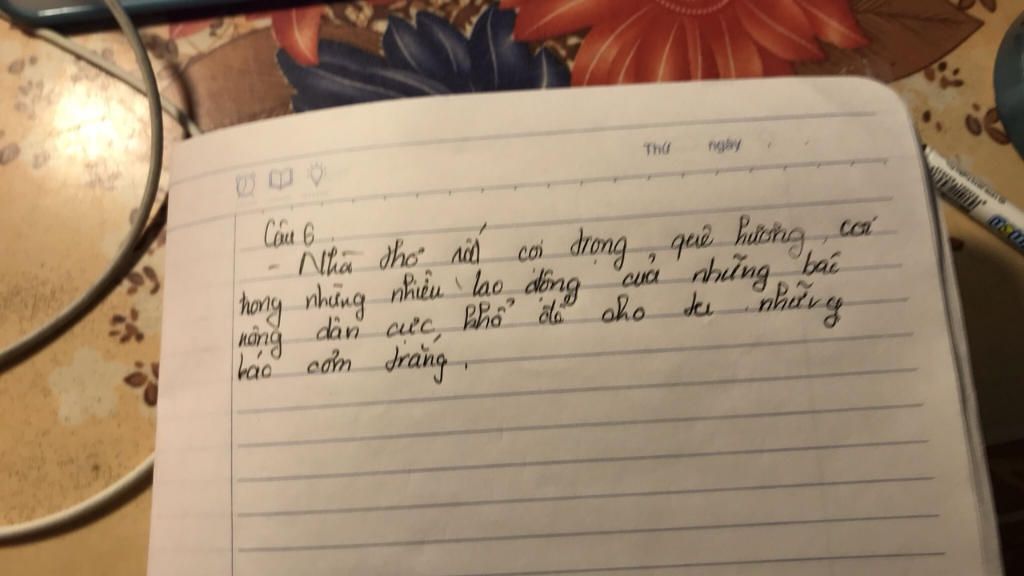 Thứ ngày
Câu 6.
- Nhà thơ rất coi trọng quê hương, coi
trong những nhiều lao động của những bác
nông dân cực khổ để cho ta những
báo cơm trắng.